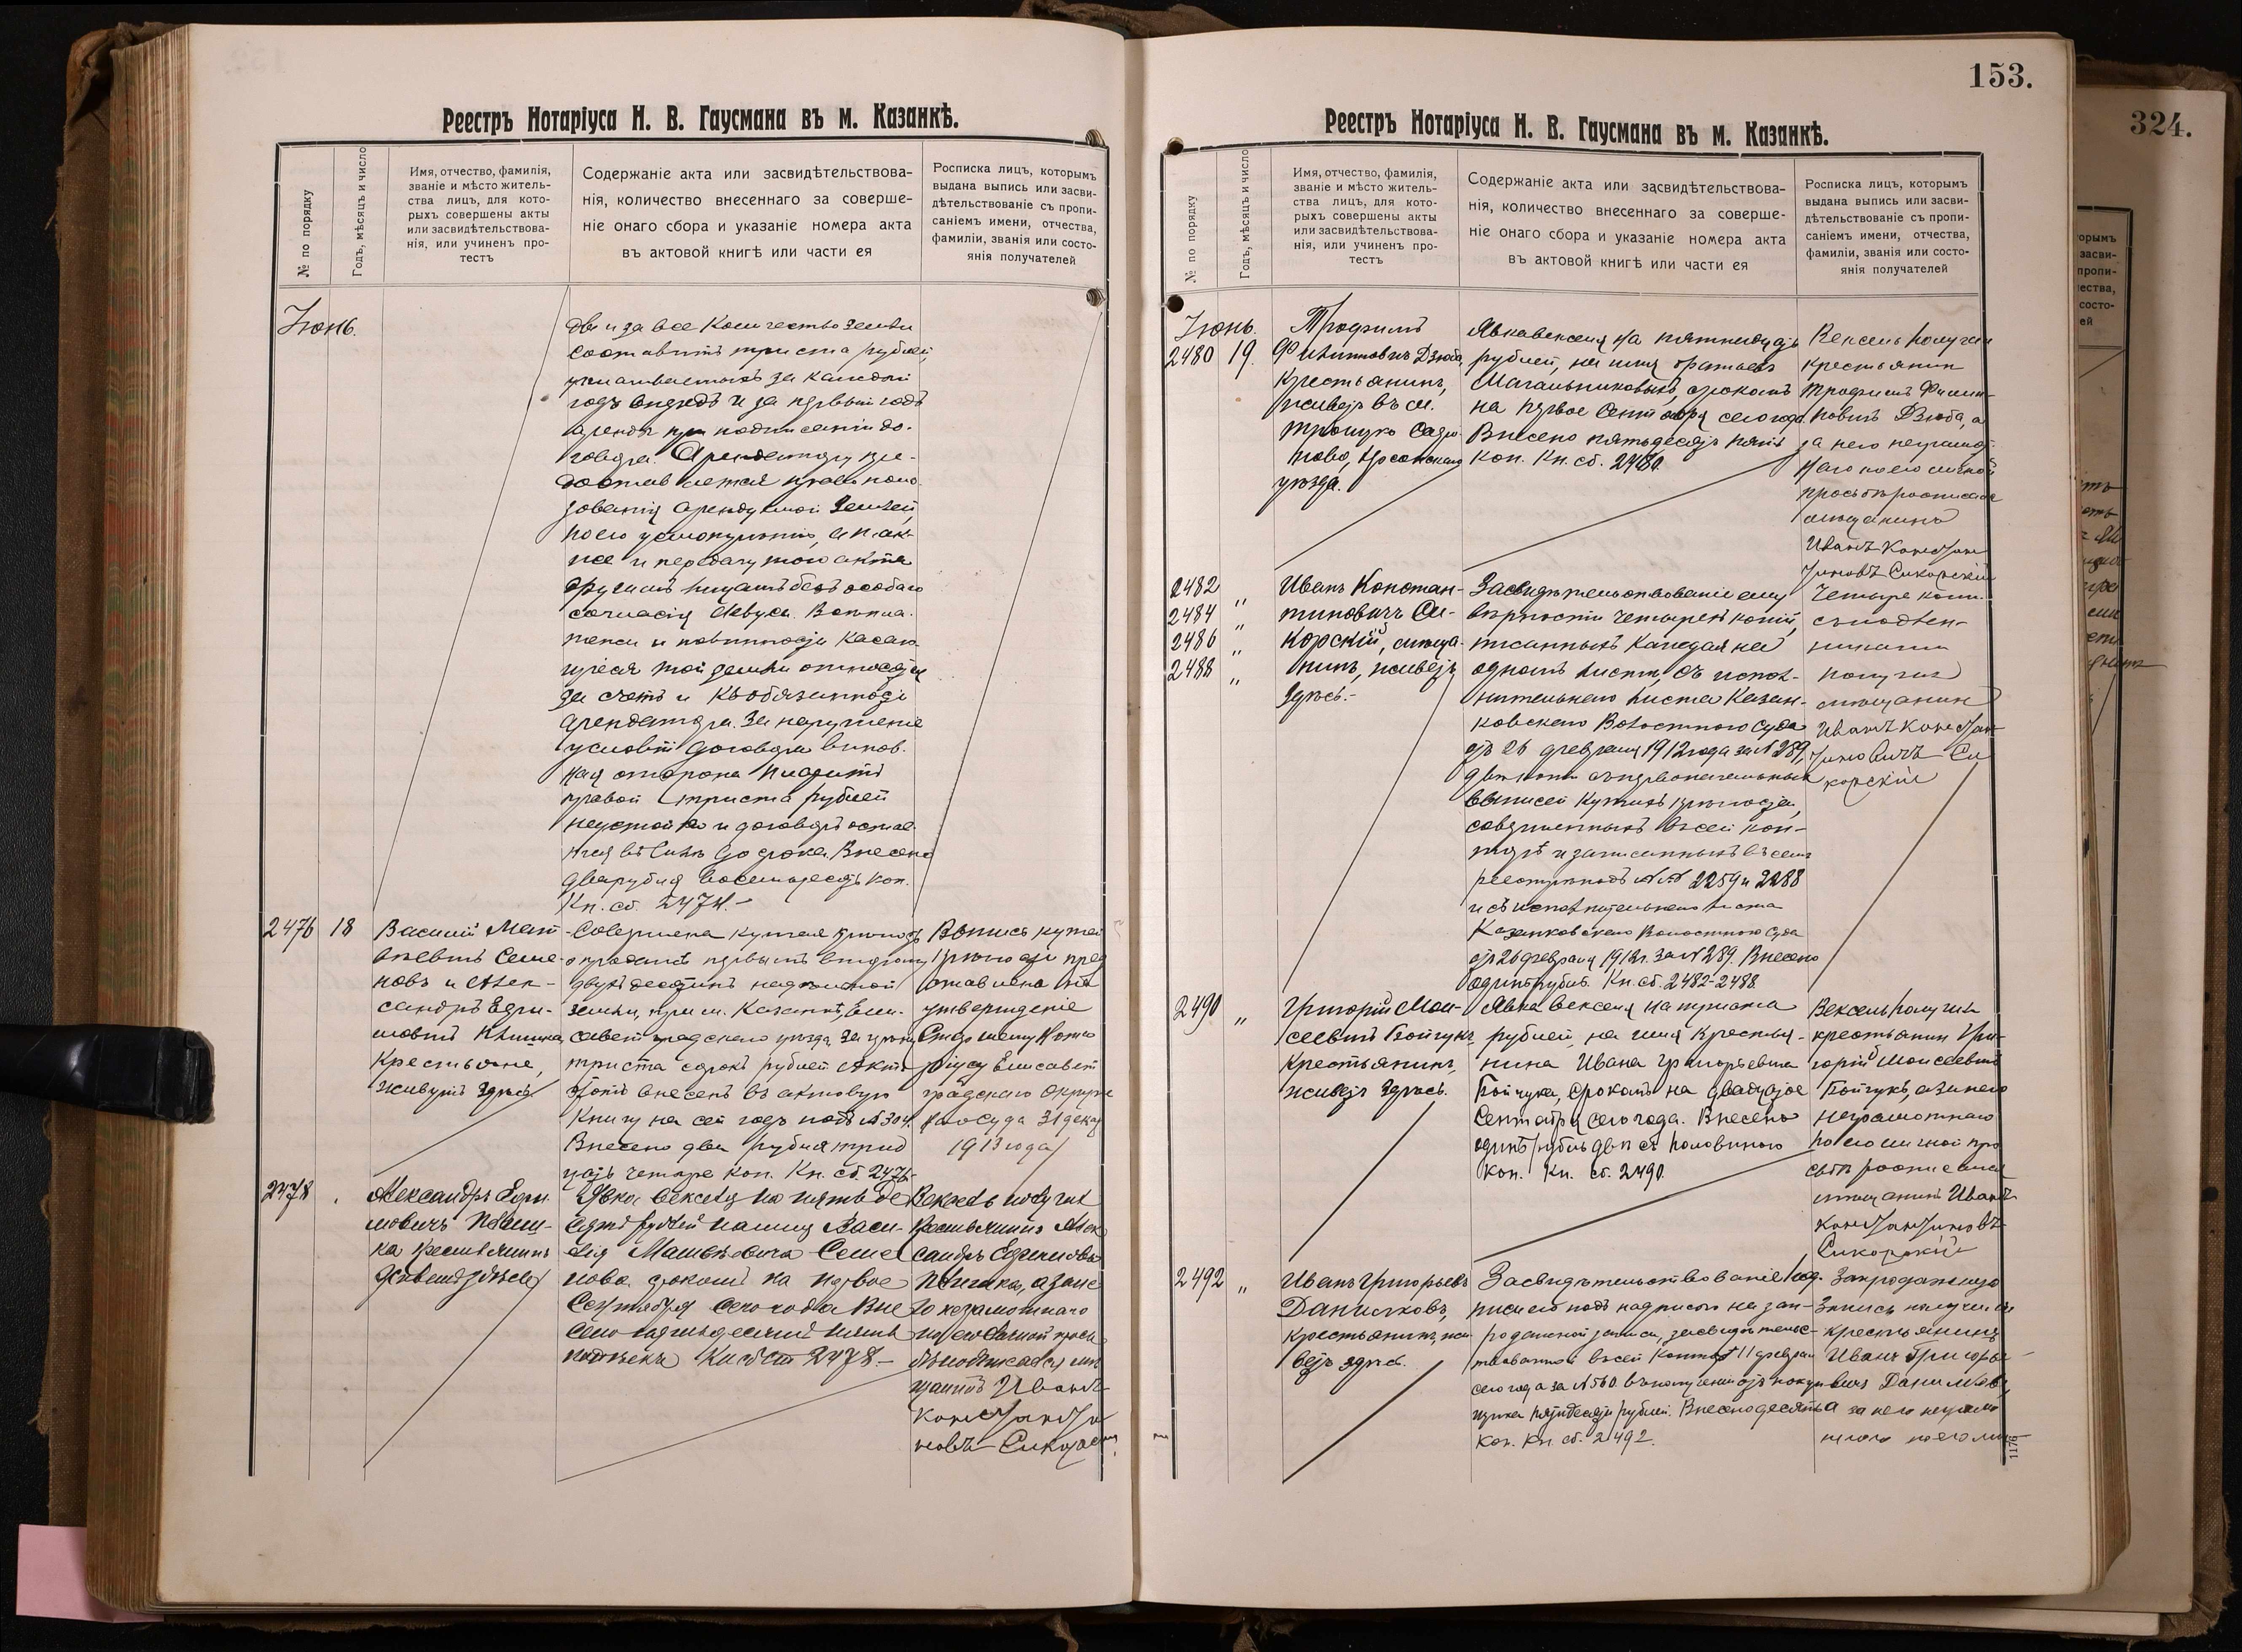 Реестръ Нотаріуса Н. В. Гаусмана въ м. Казанкѣ.
№ по порядку
Годъ, мѣсяцъ и число
Имя, отчество, фамилія,
званіе и мѣсто житель-
ства лицъ, для кото-
рыхъ совершены акты
или засвидѣтельствова-
нія, или учиненъ про-
тестъ
Содержаніе акта или засвидѣтельствова-
нія, количество внесеннаго за соверше-
ніе онаго сбора и указаніе номера акта
въ актовой книгѣ или части ея
Росписка лицъ, которымъ
выдана выпись или засви-
дѣтельствованіе съ пропи-
саніемъ имени, отчества,
фамиліи, званія или состо-
янія получателей
Іюнь.
двѣ и за все количество земли
составитъ триста рублей,
уплачиваемыхъ за каждый
годъ впередъ и за первый годъ
аренды при подписаніи до-
говора. Арендатору пре-
доставляется право поль-
зованія арендуемой землей
по его усмотрѣнію, а так-
же и передачу того акта
другимъ лицамъ безъ особаго
согласія
тежи и повинности касаю-
щіеся той земли относятся
за счетъ и къ обязанности
арендатора. За нарушеніе
условій договора винов-
ная сторона платитъ
правой триста рублей
неустойки и договоръ остае-
тся въ силѣ до срока. Внесено
два рубля восемьдесятъ коп.
Кн. сб. 2474.-
2476 18
Василій Мат-
вѣевичъ Семе-
новъ и Алек-
сандръ Ефи-
мовичъ
крестьяне,
живутъ здѣсь.
Совершена купчая крѣпость
о продажѣ первымъ второму
двухъ десятинъ надѣльной
земли, при м. Казанкѣ, Ели-
саветградскаго уѣзда за цѣну
триста сорокъ рублей. Актъ
этотъ внесенъ въ актовую
книгу на сей годъ подъ №304.
Внесено два рубля трид
цать четыре коп. Кн. сб. 2476.
Выпись купчей
крѣпости пред
ставлена на
утвержденіе
Старшему Нота
ріусу Елисавет
градскаго Окруж
наго Суда
1913 года
2478
Александръ Ефи-
мовичъ
ка крестьянинъ
живетъ здѣсь
Явка векселя на пятьде
сятъ рублей на имя Васи-
лія Матвѣевича Семе
нова срокомъ на первое
Сентября сего года Вне
сено пятьдесятъ пять
копѣекъ Кн сб 2478.-
Вексель получилъ
крестьянинъ Алек
сандръ Ефимовичъ
а за не
го неграмотнаго
по его личной прось
бѣ росписался мѣ
щанинъ Иванъ
Константи
новъ Сикорскій
153.
Реестръ Нотаріуса Н. В. Гаусмана въ м. Казанкѣ.
№ по порядку
Годъ, мѣсяцъ и число
Имя, отчество, фамилія,
званіе и мѣсто житель-
ства лицъ, для кото-
рыхъ совершены акты
или засвидѣтельствова-
нія, или учиненъ про-
тестъ
Содержаніе акта или засвидѣтельствова-
нія, количество внесеннаго за соверше-
ніе онаго сбора и указаніе номера акта
въ актовой книгѣ или части ея
Росписка лицъ, которымъ
выдана выпись или засви-
дѣтельствованіе съ пропи-
саніемъ имени, отчества,
фамиліи, званія или состо-
янія получателей
Іюнь.
2480 19.
Трофимъ
Филипповичъ Дзюба,
крестьянинъ,
живетъ въ м.
Херсонскаго
уѣзда.
Явка векселя на пятнадцать
рублей, на имя братьевъ
срокомъ
на первое Сентября сего года.
Внесено пятьдесятъ пять
коп. Кн. сб. 2480.
Вексель получилъ
крестьянин
Трофимъ Филип-
повичъ Дзюба, а
за него неграмот-
наго по его личной
просьбѣ росписался
мѣщанинъ
Иванъ Констан
тиновъ Сикорскій
2482 "
2484 "
2486 "
2488 "
Иванъ Констан-
тиновичъ Си-
корскій, мѣща-
нинъ, живетъ
здѣсь.-
Засвидѣтельствованіе ему
вѣрности четырехъ копій,
писанныхъ каждая на
одномъ листѣ, съ испол-
нительнаго листа Казан-
ковскаго Волостного Суда
отъ 26 февраля 1912 года за № 289,
двѣ копіи съ первоначальныхъ
выписей купчихъ крѣпостей,
совершенныхъ въ сей кон-
торѣ и записанныхъ въ семъ
реестрѣ подъ №№ 2259 и 2288
и съ исполнительнаго листа
Казанковскаго Волостного Суда
отъ 26 февраля 1912 г. за № 289. Внесено
одинъ рубль. Кн. сб. 2482-2488.
Четыре копіи
съ подлин-
никами
получилъ
мѣщанин
Иванъ Констан
тиновичъ Си
корскій
2490 "
Григорій Мои-
сеевичъ Бойчукъ
крестьянинъ,
живетъ здѣсь.
Явка векселя на триста
рублей, на имя крестья-
нина Ивана Григорьевича
Бойчука, срокомъ на двадцатое
Сентября сего года. Внесено
одинъ рубль двѣ съ половиною
коп. Кн. сб. 2490.
Вексель получилъ
крестьянин Гри-
горій Моисеевичъ
Бойчукъ, а за него
неграмотнаго
по его личной про
сьбѣ росписался
мѣщанинъ Иванъ
Константиновъ
Сикорскій
2492 "
Иванъ Григорьевъ
Даниляковъ,
крестьянинъ, жи-
ветъ здѣсь.
Засвидѣтельствованіе под-
писи его подъ надписью на зап-
родажной записи, засвидѣтельс-
твованной въ сей конторѣ 11 февраля
сего года за № 560. въ полученіи отъ покуп
щика пятидесяти рублей. Внесено десять
коп. Кн. сб. 2492.
Запродажную
Запись получилъ
крестьянинъ
Иванъ Григорье-
вичъ Даниляковъ,
а за него неграмо
тнаго по его лич-
1176
324.
орымъ
засви-
пропи-
чества,
состо-
ей